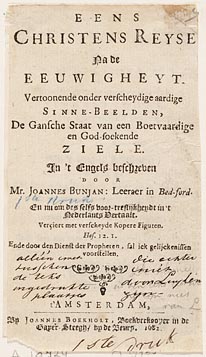 EENS
CHRISTENS REYSE
Na de
EEUWIGHEYT.
Vertoonende onder verscheydige aardige
SINNE-BEELDEN,
De Gansche Staat van een Boetvaardige
en God-soekende
ZIELE.
In 't Engels beschreven
DOOR
Mr. JOANNES BUNJAN: Leeraer in Bed-ford.
En nu om des selfs voor-treflijkheydt in 't
Nederlants Vertaalt.
Verciert met verscheyde Kopere Figuren.
Hof. 12. 1.
Ende door den Dienst der Propheten, sal ick gelijckenissen
voorstellen.
AMSTERDAM,
By JOANNES BOEKHOLT, Boekverkooper in de
Gaper-Steegh, by de Beurs. 1682.
1ste Druk